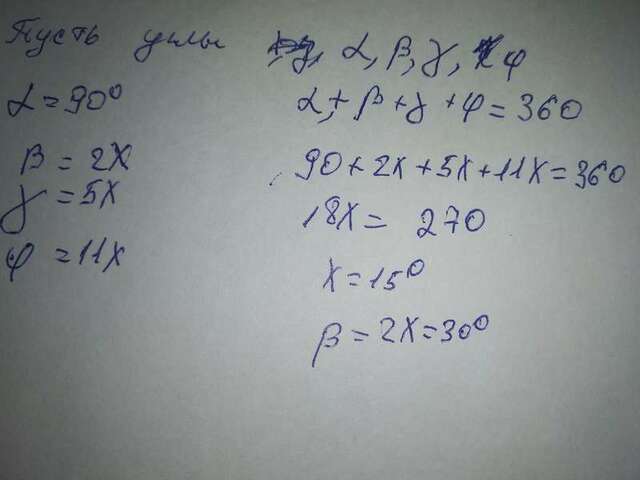 Пусть углы α, β, γ, φ
α = 90°
β = 2x
γ = 5x
φ = 11x
α + β + γ + φ = 360
90 + 2x + 5x + 11x = 360
18x = 270
x = 15°
β = 2x = 30°